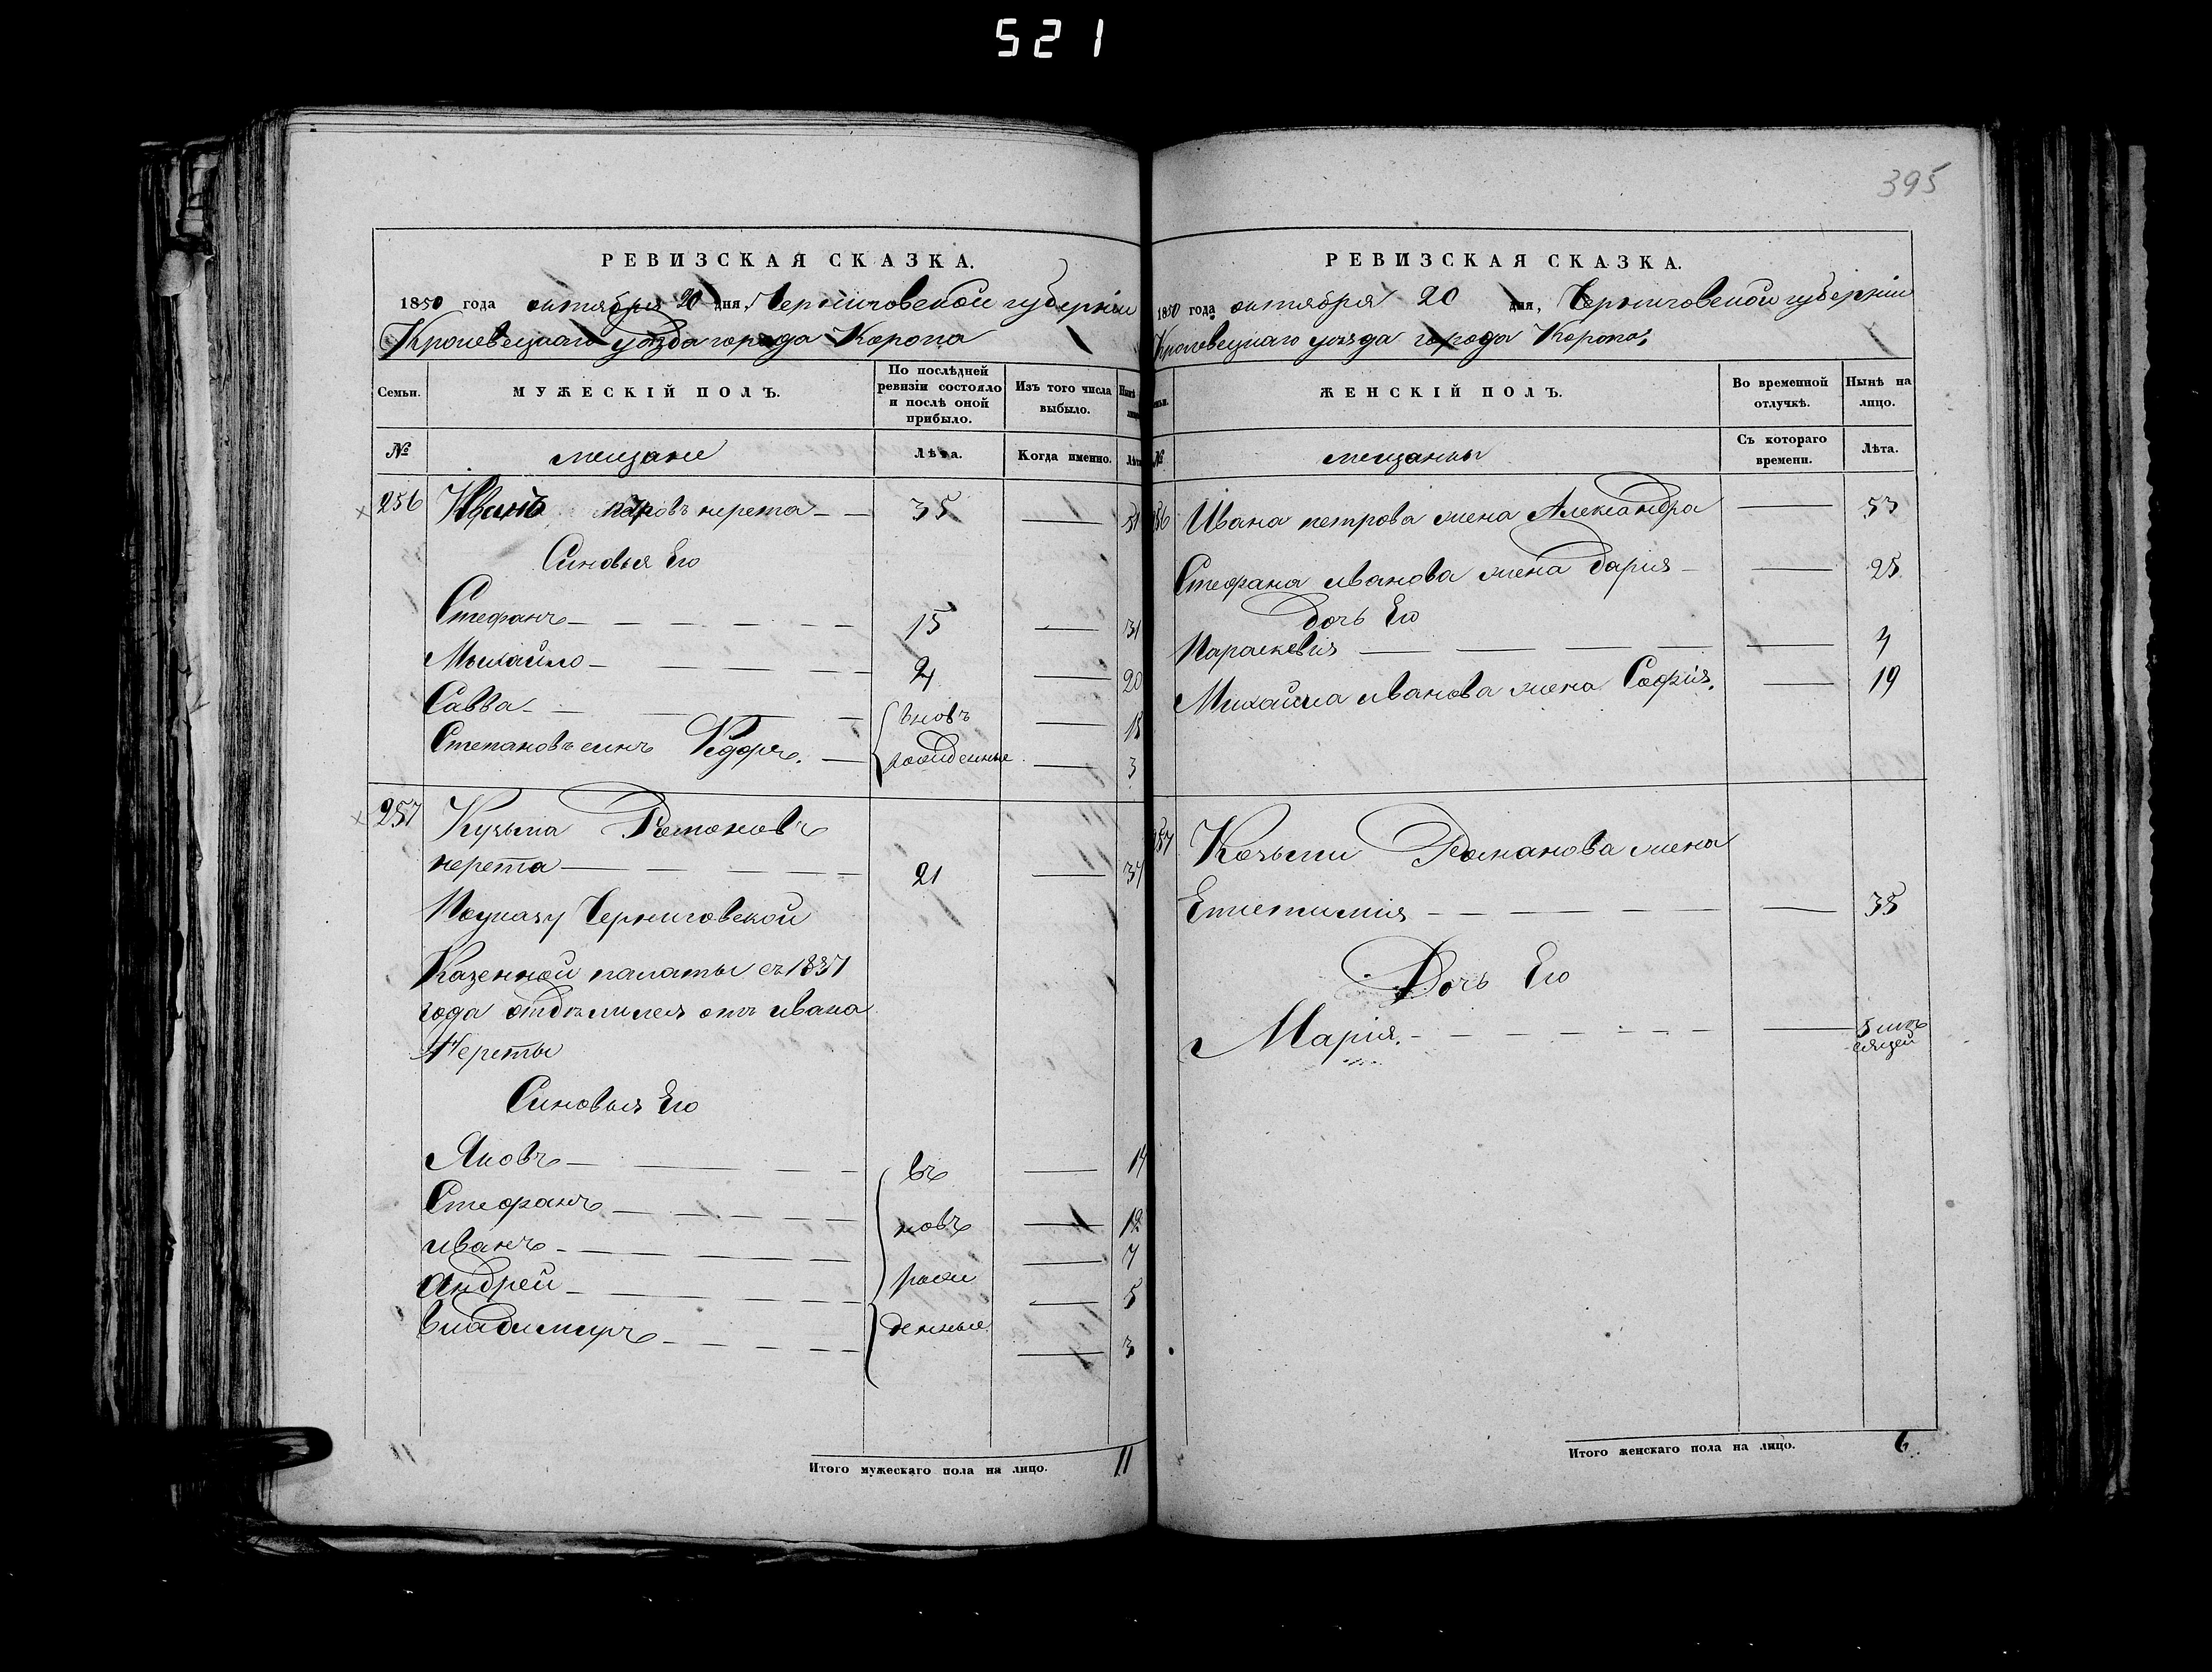 521
395
РЕВИЗСКАЯ СКАЗКА.
1850 года октября 20 дня, Черниговской губерніи
Кролевецкаго уѣзда города Коропа
Семьи.
МУЖЕСКІЙ ПОЛЪ.
По послѣдней ревизіи состояло и послѣ оной прибыло.
Изъ того числа выбыло.
Нынѣ
№
мещане
Лѣта.
Когда именно.
Лѣта
256 Иванъ перета 35 51
Синовья Его
Стефанъ 15 31
Михайло 4 20
Савва вновь 15
Степановъ синъ Федоръ. рожденные 3
257 Кузьма Романовъ
перета 21 37
Поуказу Черниговской
Казенной палаты съ 1837
года отдѣлился отъ ивана
Переты
Синовья Его
Яковъ въ 14
Стефанъ новъ 12
иванъ 7
Андрей рож 5
владимиръ денные 3
Итого мужескаго пола на лицо. 11
РЕВИЗСКАЯ СКАЗКА.
1850 года октября 20 дня, Черниговской губерніи
Кролевецкаго уѣзда города Коропа,
ЖЕНСКІЙ ПОЛЪ.
Во временной отлучкѣ.
Нынѣ на лицо.
№
мещанки
Съ котораго времени.
Лѣта.
Ивана петрова жена Александра 53
Стефана иванова жена дарія 25
дочь Его
Параскевія 4
Михайла иванова жена Софія. 19
Козьми Романова жена
35
Дочь Его
Марія. 5 мѣ
сяцей
Итого женскаго пола на лицо. 6